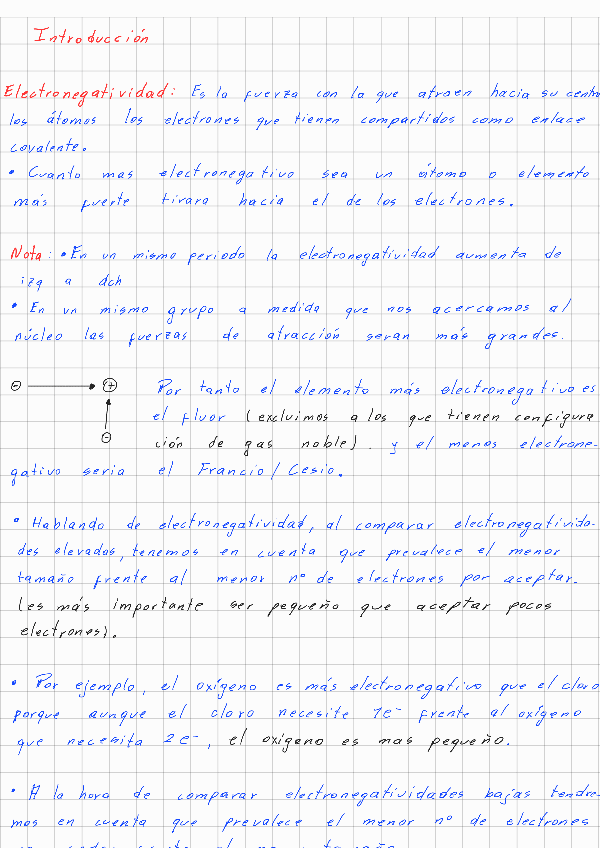 Introducción
Electronegatividad: Es la fuerza con la que atraen hacia su centro
los átomos los electrones que tienen compartidos como enlace
covalente.
• Cuanto mas electronegativo sea un átomo o elemento
más fuerte tirara hacia el de los electrones.
Nota: • En un mismo periodo la electronegatividad aumenta de
izq a dch
• En un mismo grupo a medida que nos acercamos al
núcleo las fuerzas de atracción seran más grandes.
Por tanto el elemento más electronegativo es
el fluor (excluimos a los que tienen configura
ción de gas noble). y el menos electrone-
gativo seria el Francio/Cesio.
• Hablando de electronegatividad, al comparar electronegativida-
des elevadas, tenemos en cuenta que prevalece el menor
tamaño frente al menor nº de electrones por aceptar.
(es más importante ser pequeño que aceptar pocos
electrones).
• Por ejemplo, el oxígeno es más electronegativo que el cloro
porque aunque el cloro necesite 1e⁻ frente al oxígeno
que necesita 2e⁻, el oxígeno es mas pequeño.
• A la hora de comparar electronegatividades bajas tendre-
mos en cuenta que prevalece el menor nº de electrones